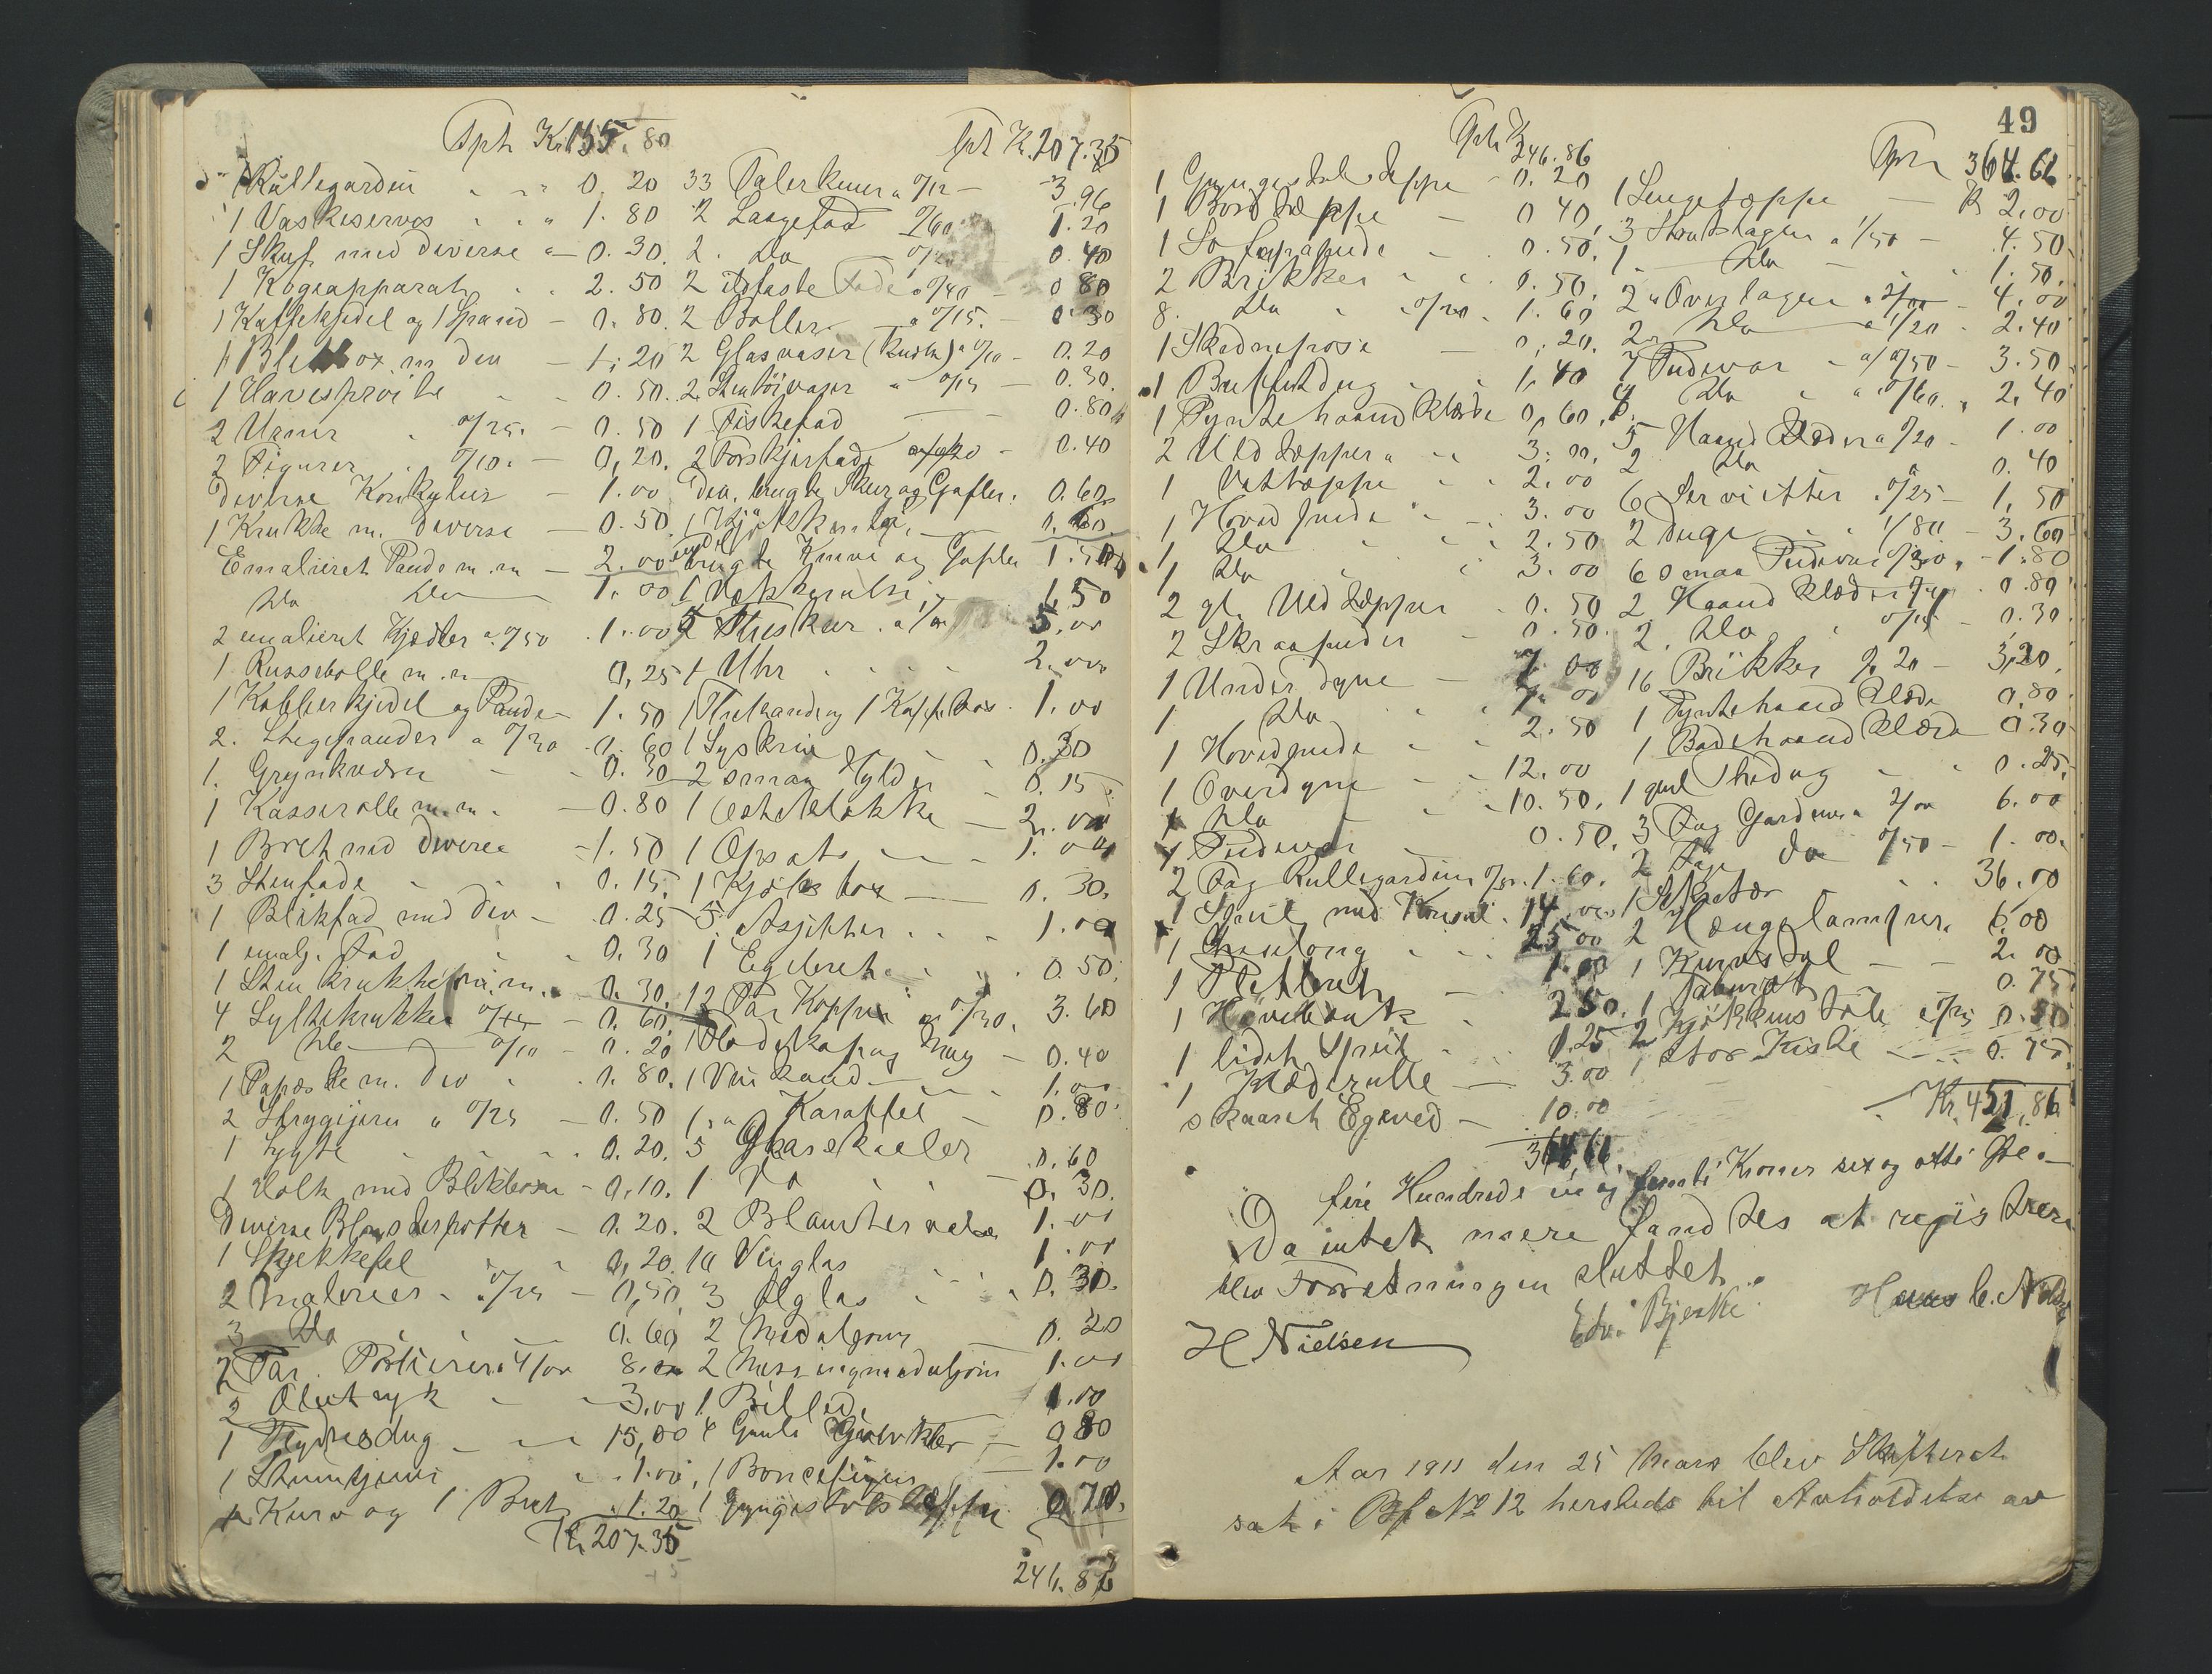 Tpt Kr. 155.80
1 Rullegardin 0.20
1 Vaskeservas 1.80
1 Skuf med diverse 0.30
1 Kogeapparat 2.50
1 Kaffekjedel og 1 Spand 0.80
1 m div 1.20
1 Havesprøite 0.50
2 Urner 0/25 0.50
2 Figurer 0/10 0.20
Diverse Konkylier 1.00
1 Krukke m. diverse 0.50
Emalieret Pande m.m 2.00
do do 1.00
2 emalieret Kjedler a 0/50 1.00
1 Russebolle m.m 0.25
1 Kobberkjedel og Pande 1.50
2 Stegepander a 0/30 0.60
1 Grynkværn 0.30
1 Kasserolle m.m. 0.80
1 Bret med diverse 1.50
3 Stenfade 0.15
1 Blikfad med div 0.25
1 emalj. Fad 0.30
1 Stenkrukke m.m. 0.30
4 Syltekrukker 0/15 0.60
2 do 0/10 0.20
1 Papæske m. div 0.80
2 Strygejern a 0/25 0.50
1 Lygte 0.20
1 Holk med Blikbøsse 0.10
Diverse Blomsterpotter 0.20
1 0.20
2 Malerier 0/25 0.50
3 do 0.60
2 Par Portierer a 4/00 8.00
2 Olietryk 3.00
1 15.00
1 Stumtjener 1.00
1 Kurv og 1 Bret 1.20
Kr. 207.35
Tpt Kr. 207.35
33 Talerkener a 0/12 3.96
2 Laagefad 0/60 1.20
2 do 0/20 0.40
2 ildfaste Fade a 0/40 0.80
2 Boller a 0/15 0.30
2 Glasvaser (Kudk) a 0/10 0.20
2 Stentøivaser a 0/15 0.30
1 Fiskefad 0.80
2 Forskjærfade 0/20 0.40
div. brugte Skeer og Gafler 0.60
1 0.60
brugte Knive og Gafler 1.50
1 Vækkeruhr 1.50
5 Theskeer a 1/00 5.00
1 Uhr 2.00
1 Thekande og 1 Kaffe 1.00
1 Syskrin 0.30
2 smaa Hylder 0.15
1 Osteklokke 2.00
1 Opsats 1.00
1 0.30
5 Asjetter 1.00
1 Egebret 0.50
12 Par Kopper a 0/30 3.60
1 Flødekop og Mug 0.40
1 Vinkande 1.00
1 Karaffel 0.80
5 Glasskaaler 0.60
1 do 0.30
2 Blomster 1.00
10 Vinglas 1.00
3 Ølglas 0.30
2 Medaljons 0.20
2 Messingmedaljons 1.00
1 Billede 1.00
4 Gamle 0.80
1 1.00
1 Gyngestols 0.70
246.86
49
Tpt Kr 246.86
1 Gyngestolsteppe 0.20
1 Bordtæppe 0.40
1 Sofapude 0.50
2 Brikker 0.50
8 do 0/20 1.60
1 Skednepose 0.20
1 Buffetdug 1.40
1 Pyntehaandklæde 0.60
2 Uldtæpper 3.00
1 Vattæppe 2.00
1 Hovedpude 3.00
1 do 2.50
1 do 3.00
2 gl. Uldtæpper 0.50
2 Skraapuder 0.50
1 Underdyne 7.00
1 do 7.00
1 Hovedpude 2.50
1 Overdyne 12.00
1 do 10.50
1 Pudevar 0.50
2 Fag Rullegardiner 0/80 1.60
1 Speil med Konsol 14.00
1 25.00
1 1.00
1 Høvelbænk 2.50
1 lidet Speil 1.25
1 Klæderulle 3.00
skaaret Egeved 10.00
364.61
Tpt 364.61
1 Sengetæppe Kr 2.00
3 Stoutslagen a 1/50 4.50
1 do 1.50
2 Overlagen a 2/00 4.00
2 do a 1/20 2.40
7 Pudevar a 0/50 3.50
4 do a 0/60 2.40
5 Haandklæder a 0/20 1.00
2 do 0.40
6 Servietter 0/25 1.50
2 Duge 1/80 3.60
6 smaa Pudevar 0/30 1.80
2 Haandklæder 0/40 0.80
2 do 0/15 0.30
16 Brikker 0/20 3.20
1 Pyntehaandklæde 0.80
1 Badehaandklæde 0.30
1 gml Thedug 0.25
3 Fag Gardiner a 2/00 6.00
2 Fag do 0/50 1.00
1 Sekretær 36.00
2 Hængelamper 6.00
1 Kurvstol 2.00
1 Taburet 0.75
2 Kjøkkenstole a 0/25 0.50
1 stor Kiste 0.75
Kr. 451.86
fire Hundrede en og femti Kroner sex og otti Øre
Da intet mere fandtes at registrere
blev Forretningen sluttet.
H Nielsen Edv. Bjerke Hans C. Nielsen
Aar 1911 den 25 Mars blev Skifteret
sat i Bf No 12 hersteds til Avholdelse av